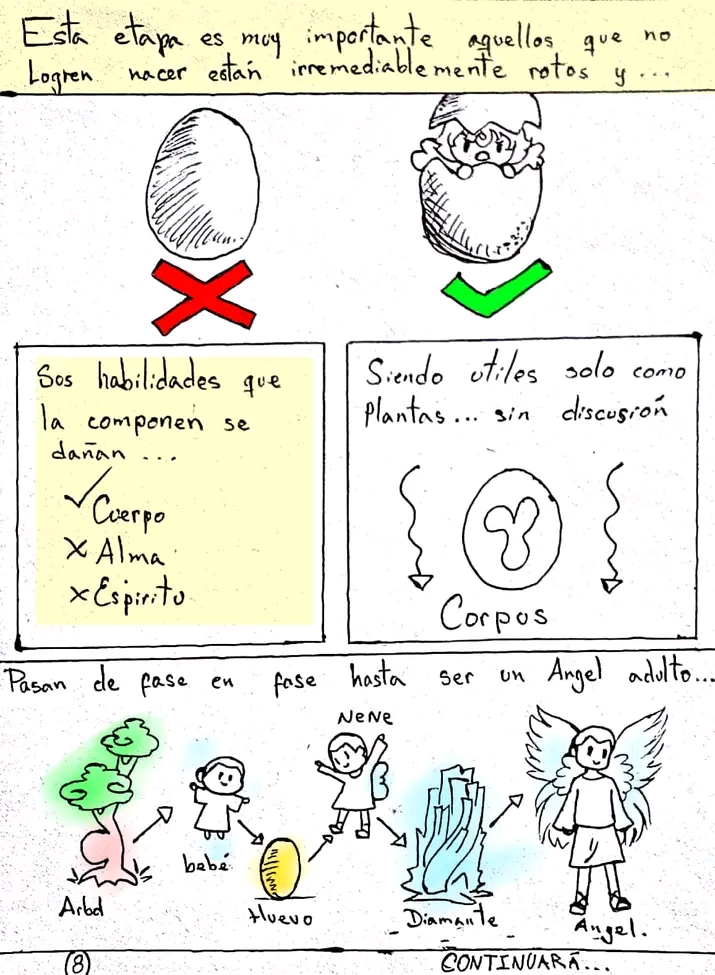 Esta etapa es muy importante aquellos que no
Logren nacer están irremediablemente rotos y ...
Sus habilidades que
la componen se
dañan ...
Cuerpo
Alma
Espiritu
Siendo utiles solo como
Plantas... sin discusión
Corpus
Pasan de fase en fase hasta ser un Angel adulto...
NeNe
bebé
Arbol
Huevo
Diamante
Angel.
8
CONTINUARÁ...